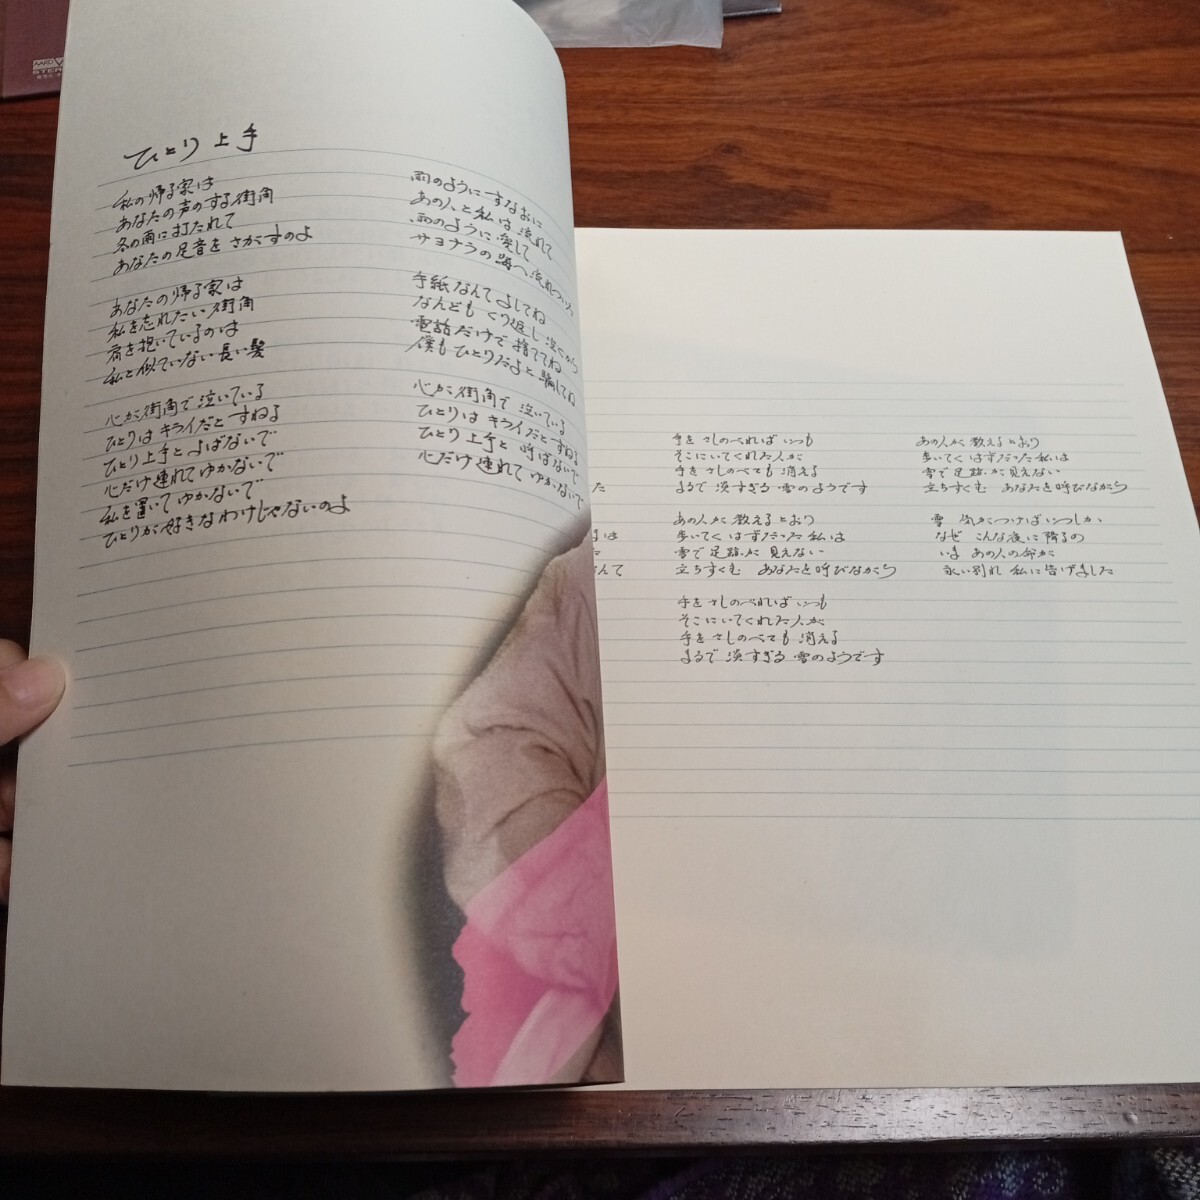 ひとり上手
私の帰る家は
あなたの声のする街角
冬の雨に打たれて
あなたの足音を さがすのよ
あなたの帰る家は
私を忘れたい街角
肩を抱いているのは
私と似ていない長い髪
心が街角で泣いている
ひとりは キライだと すねる
ひとり上手と よばないで
心だけ連れて ゆかないで
私を置いて ゆかないで
ひとりが 好きなわけじゃないのよ
雨のように すなおに
あの人と私は 流れて
雨のように 愛して
サヨナラの 海へ 流れついた
手紙なんて よしてね
なんども くり返し 泣くから
電話だけで 捨ててね
僕も ひとりだよと 騙してね
心が 街角で 泣いている
ひとりは キライだと すねる
ひとり上手と 呼ばないで
心だけ 連れて ゆかないで
た
るは
た
なんて
手を さしのべれば いつも
そこにいてくれた人が
手を さしのべても 消える
まるで 淡すぎる 雪のようです
あの人が 教えるとおり
歩いてく はずだった 私は
雪で 足跡が 見えない
立ちすくむ あなたを呼びながら
手を さしのべれば いつも
そこにいてくれた人が
手を さしのべても 消える
まるで 淡すぎる 雪のようです
あの人が 教えるとおり
歩いてく はずだった 私は
雪で 足跡が 見えない
立ちすくむ あなたを呼びながら
雪 気がつけば いつしか
なぜ こんな夜に 降るの
いま あの人の命が
永い別れ 私に告げました